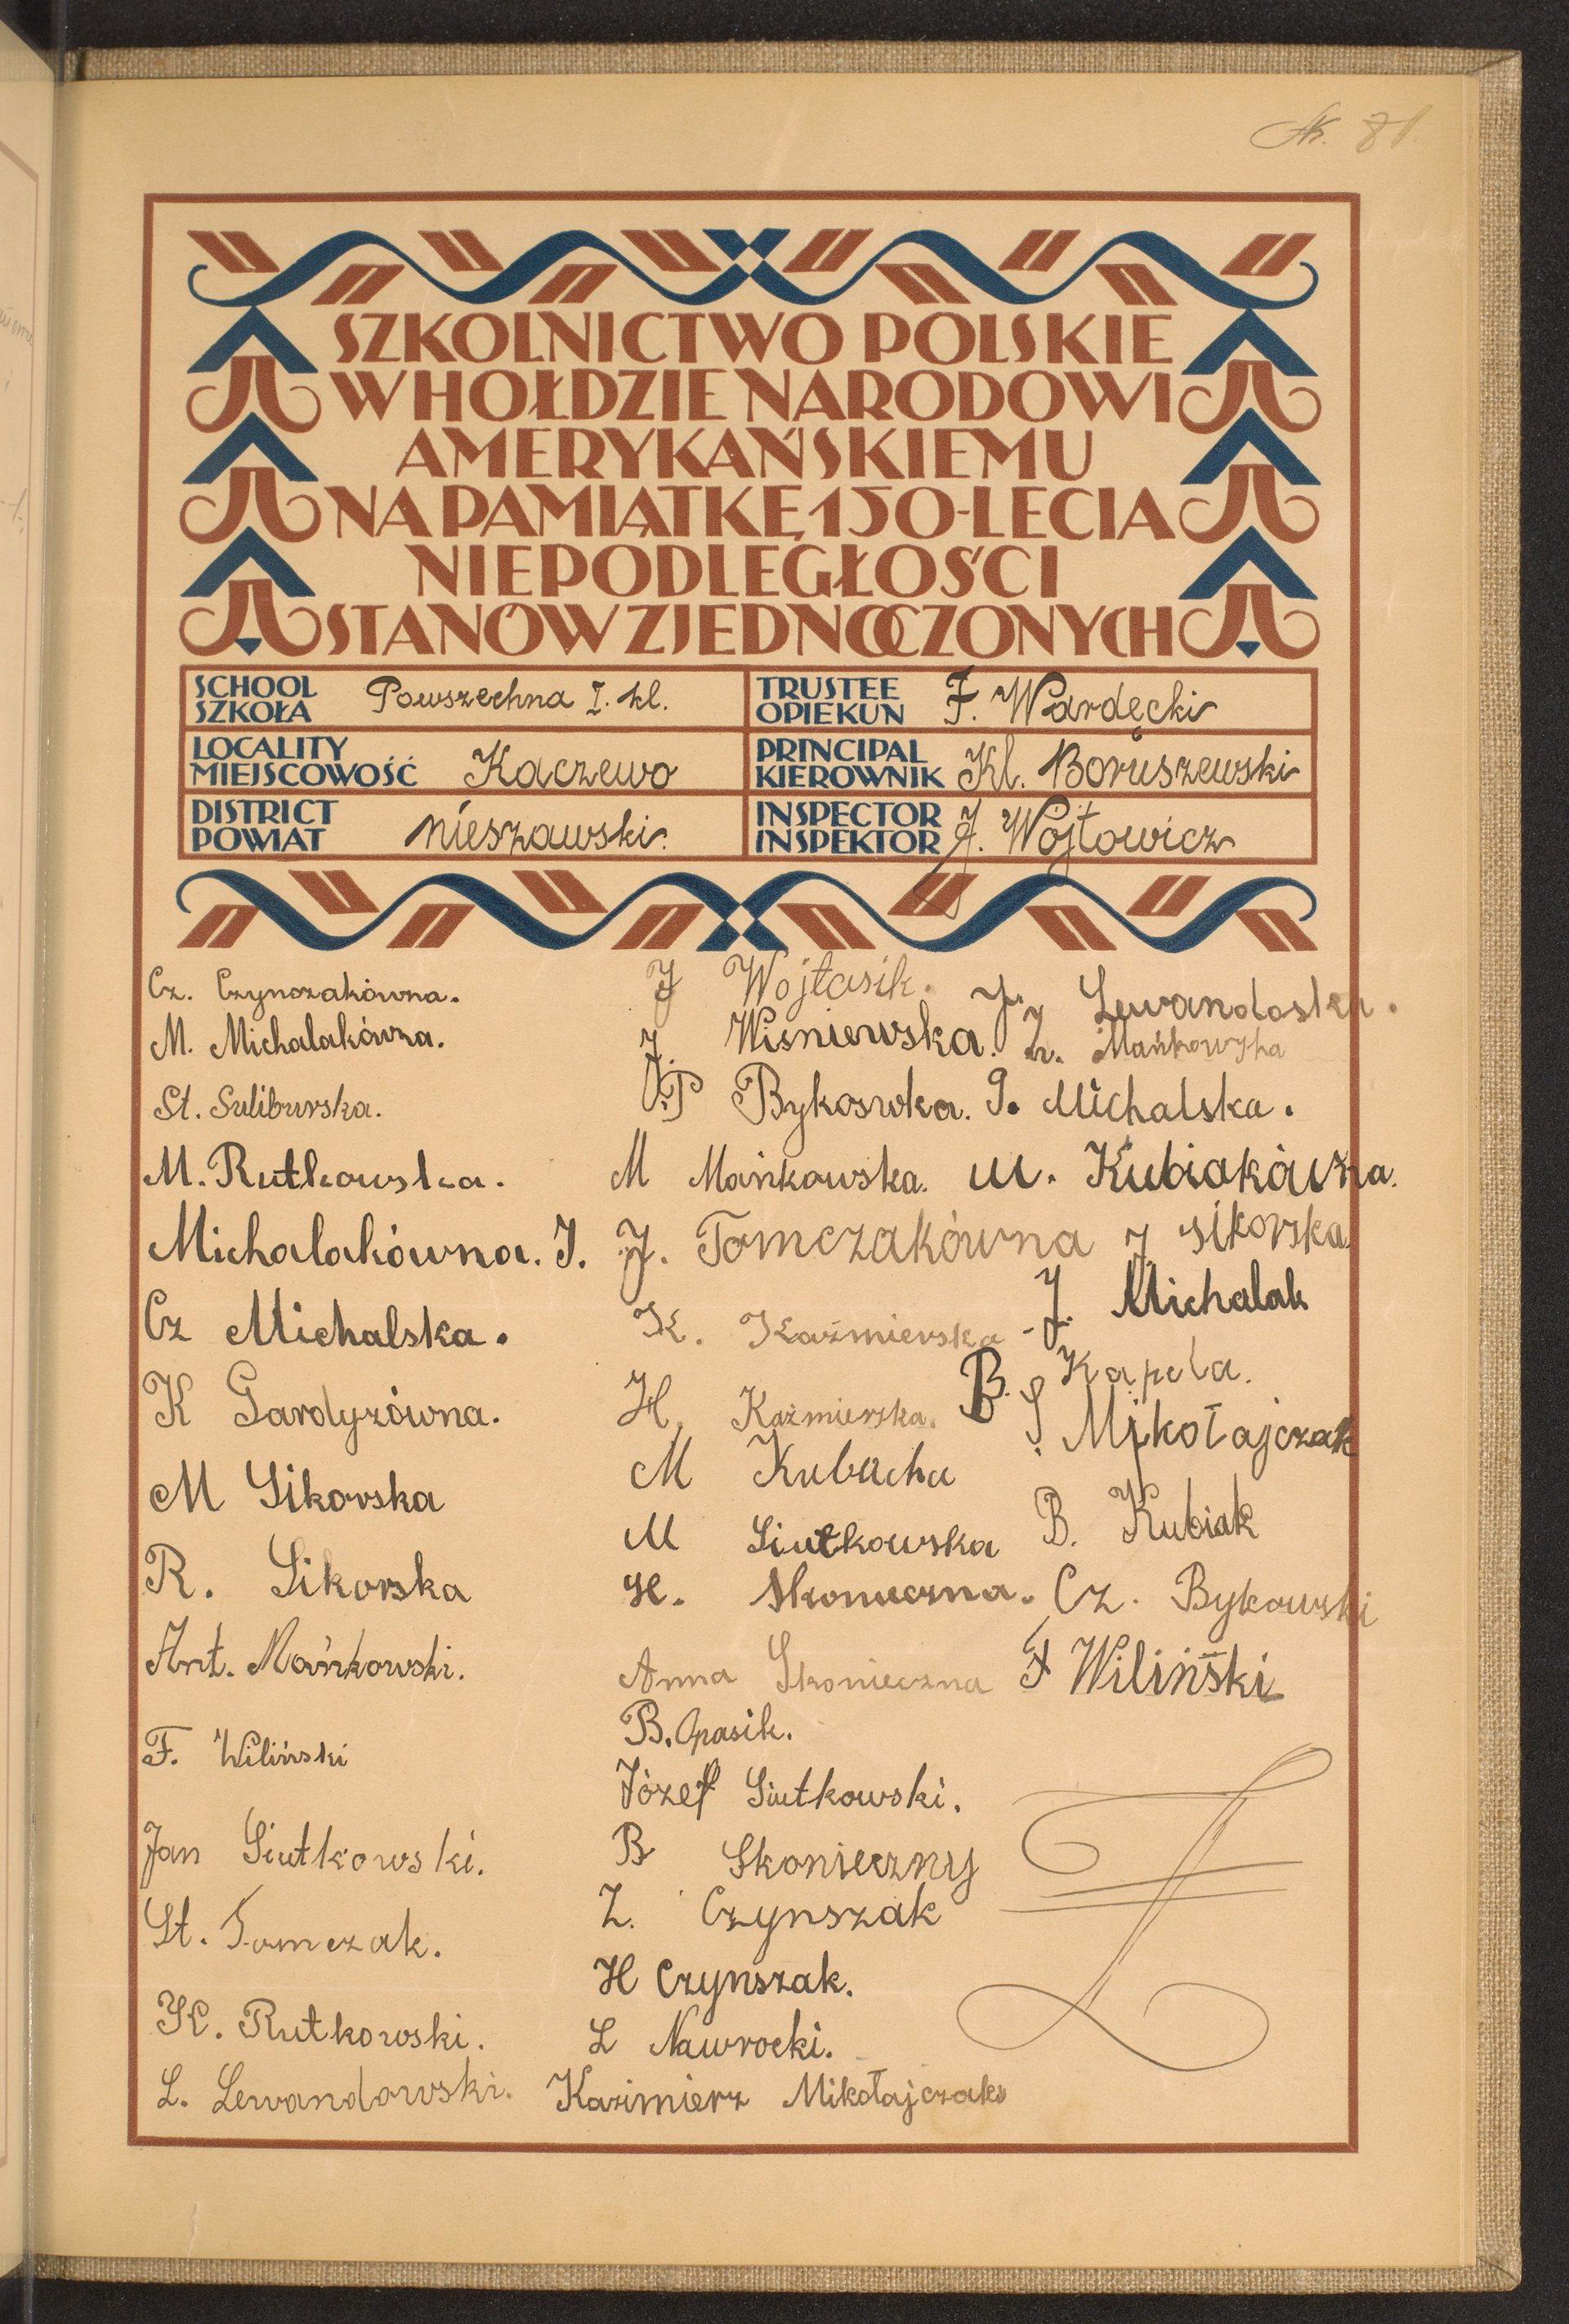 81.
SZKOLNICTWO POLSKIE
W HOŁDZIE NARODOWI
AMERYKAŃSKIEMU
NA PAMIĄTKĘ 150-LECIA
NIEPODLEGŁOŚCI
STANÓW ZJEDNOCZONYCH
SCHOOL
SZKOŁA
Powszechna I. kl.
TRUSTEE
OPIEKUN
F. Wardęcki
LOCALITY
MIEJSCOWOŚĆ
Kaczewo
PRINCIPAL
KIEROWNIK
Kl. Boruszewski
DISTRICT
POWIAT
nieszawski.
INSPECTOR
INSPEKTOR
J. Wójtowicz
Cz. Czynszakówna.
M. Michalakówna.
St. Suliburska.
M. Rutkowska.
Michalakówna. J.
Cz Michalska.
K Gardyzówna.
M Sikorska
R. Sikorska
Ant. Mańkowski.
F. Wiliński
Jan Siutkowski.
St. Tomczak.
K. Rutkowski.
L. Lewandowski.
J Wojtasik.
J. Wiśniewska.
P Bykoswka.
M Mańkowska.
J. Tomczakówna
K. Kaźmierska
H. Kaźmierska.
M Kubacha
M Siutkowska
H. Skonieczna.
Anna Skonieczna
B. Opasik.
Józef Siutkowski.
B Skonieczny
Z. Czynszak
H Czynszak.
L Nawrocki.
Kazimierz Mikołajczak
J. Lewandoska.
Z. Mańkowska
J. Michalska.
M. Kubiakówna.
J Sikorska
J. Michalak
B. Kapela.
S. Mikołajczak
B. Kubiak
Cz. Bykowski
F Wiliński